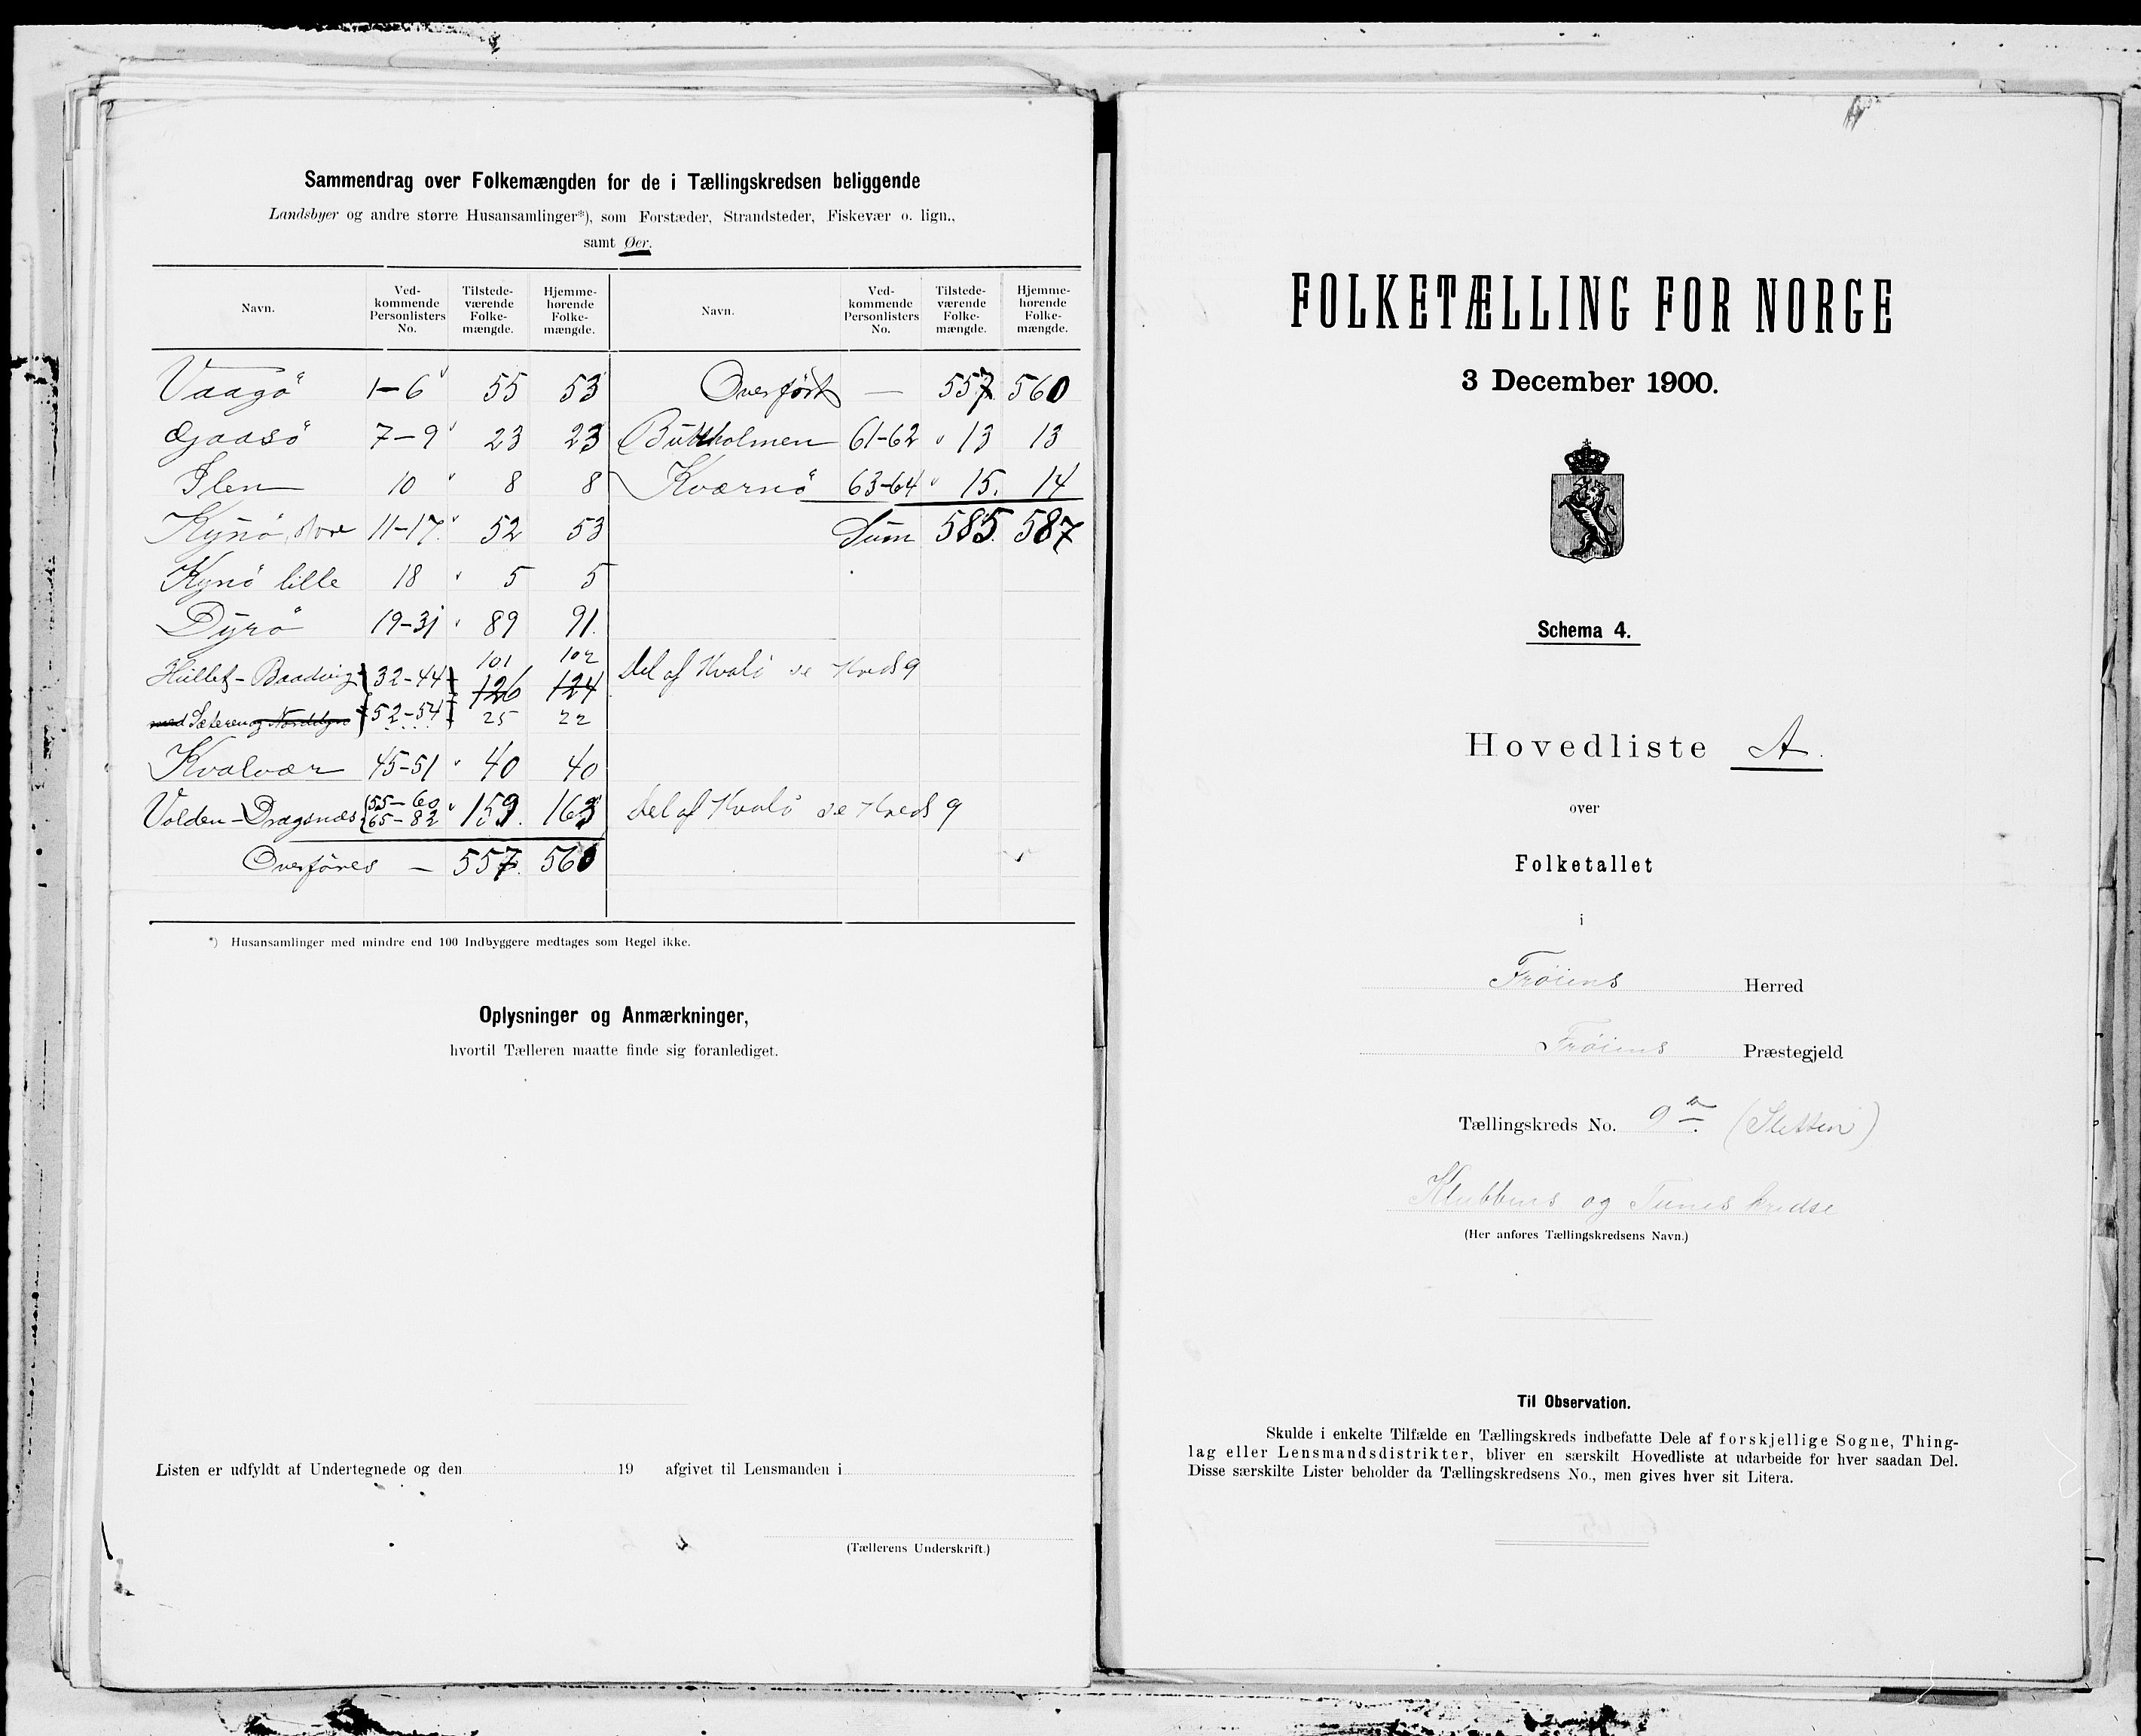 Sammendrag over Folkemængden for de i Tællingskredsen beliggende
Landsbyer og andre større Husansamlinger*), som Forstæder, Strandsteder, Fiskevær o. lign.,
samt Øer.
Navn. Ved-kommende Personlisters No. Tilstede-værende Folke-mængde. Hjemme-hørende Folke-mængde. Navn. Ved-kommende Personlisters No. Tilstede-værende Folke-mængde. Hjemme-hørende Folke-mængde.
Vaagö 1-6 55 53 Overført — 557 560
Gjaasö 7-9 23 23 Buttholmen 61-62 13 13
Ilen 10 8 8 Kværnö 63-64 15. 14
Kynö, store 11-17 52 53 Sum 585. 587
Kynö lille 18 5 5
Dyrö 19-31 89 91.
101 102
Hullet-Baadvig 32-44 126 124 Del af Kvalö se Kreds 9
med Sæteren og 52-54 25 22
Kvalvær 45-51 40 40
Volden-Dragsnæs 55-60 65-82 159. 163 Del af Kvalö se Kreds 9
Overføres — 557. 560
*) Husansamlinger med mindre end 100 Indbyggere medtages som Regel ikke.
Oplysninger og Anmærkninger,
hvortil Tælleren maatte finde sig foranlediget.
Listen er udfyldt af Undertegnede og den 19 afgivet til Lensmanden i
(Tællerens Underskrift.)
FOLKETÆLLING FOR NORGE
3 December 1900.
Schema 4.
Hovedliste A.
over
Folketallet
i
Frøiens Herred
Frøiens Præstegjeld
Tællingskreds No. 9 a. (Sletten)
Klubbens og Tunes kredse
(Her anføres Tællingskredsens Navn.)
Til Observation.
Skulde i enkelte Tilfælde en Tællingskreds indbefatte Dele af forskjellige Sogne, Thing-
lag eller Lensmandsdistrikter, bliver en særskilt Hovedliste at udarbeide for hver saadan Del.
Disse særskilte Lister beholder da Tællingskredsens No., men gives hver sit Litera.